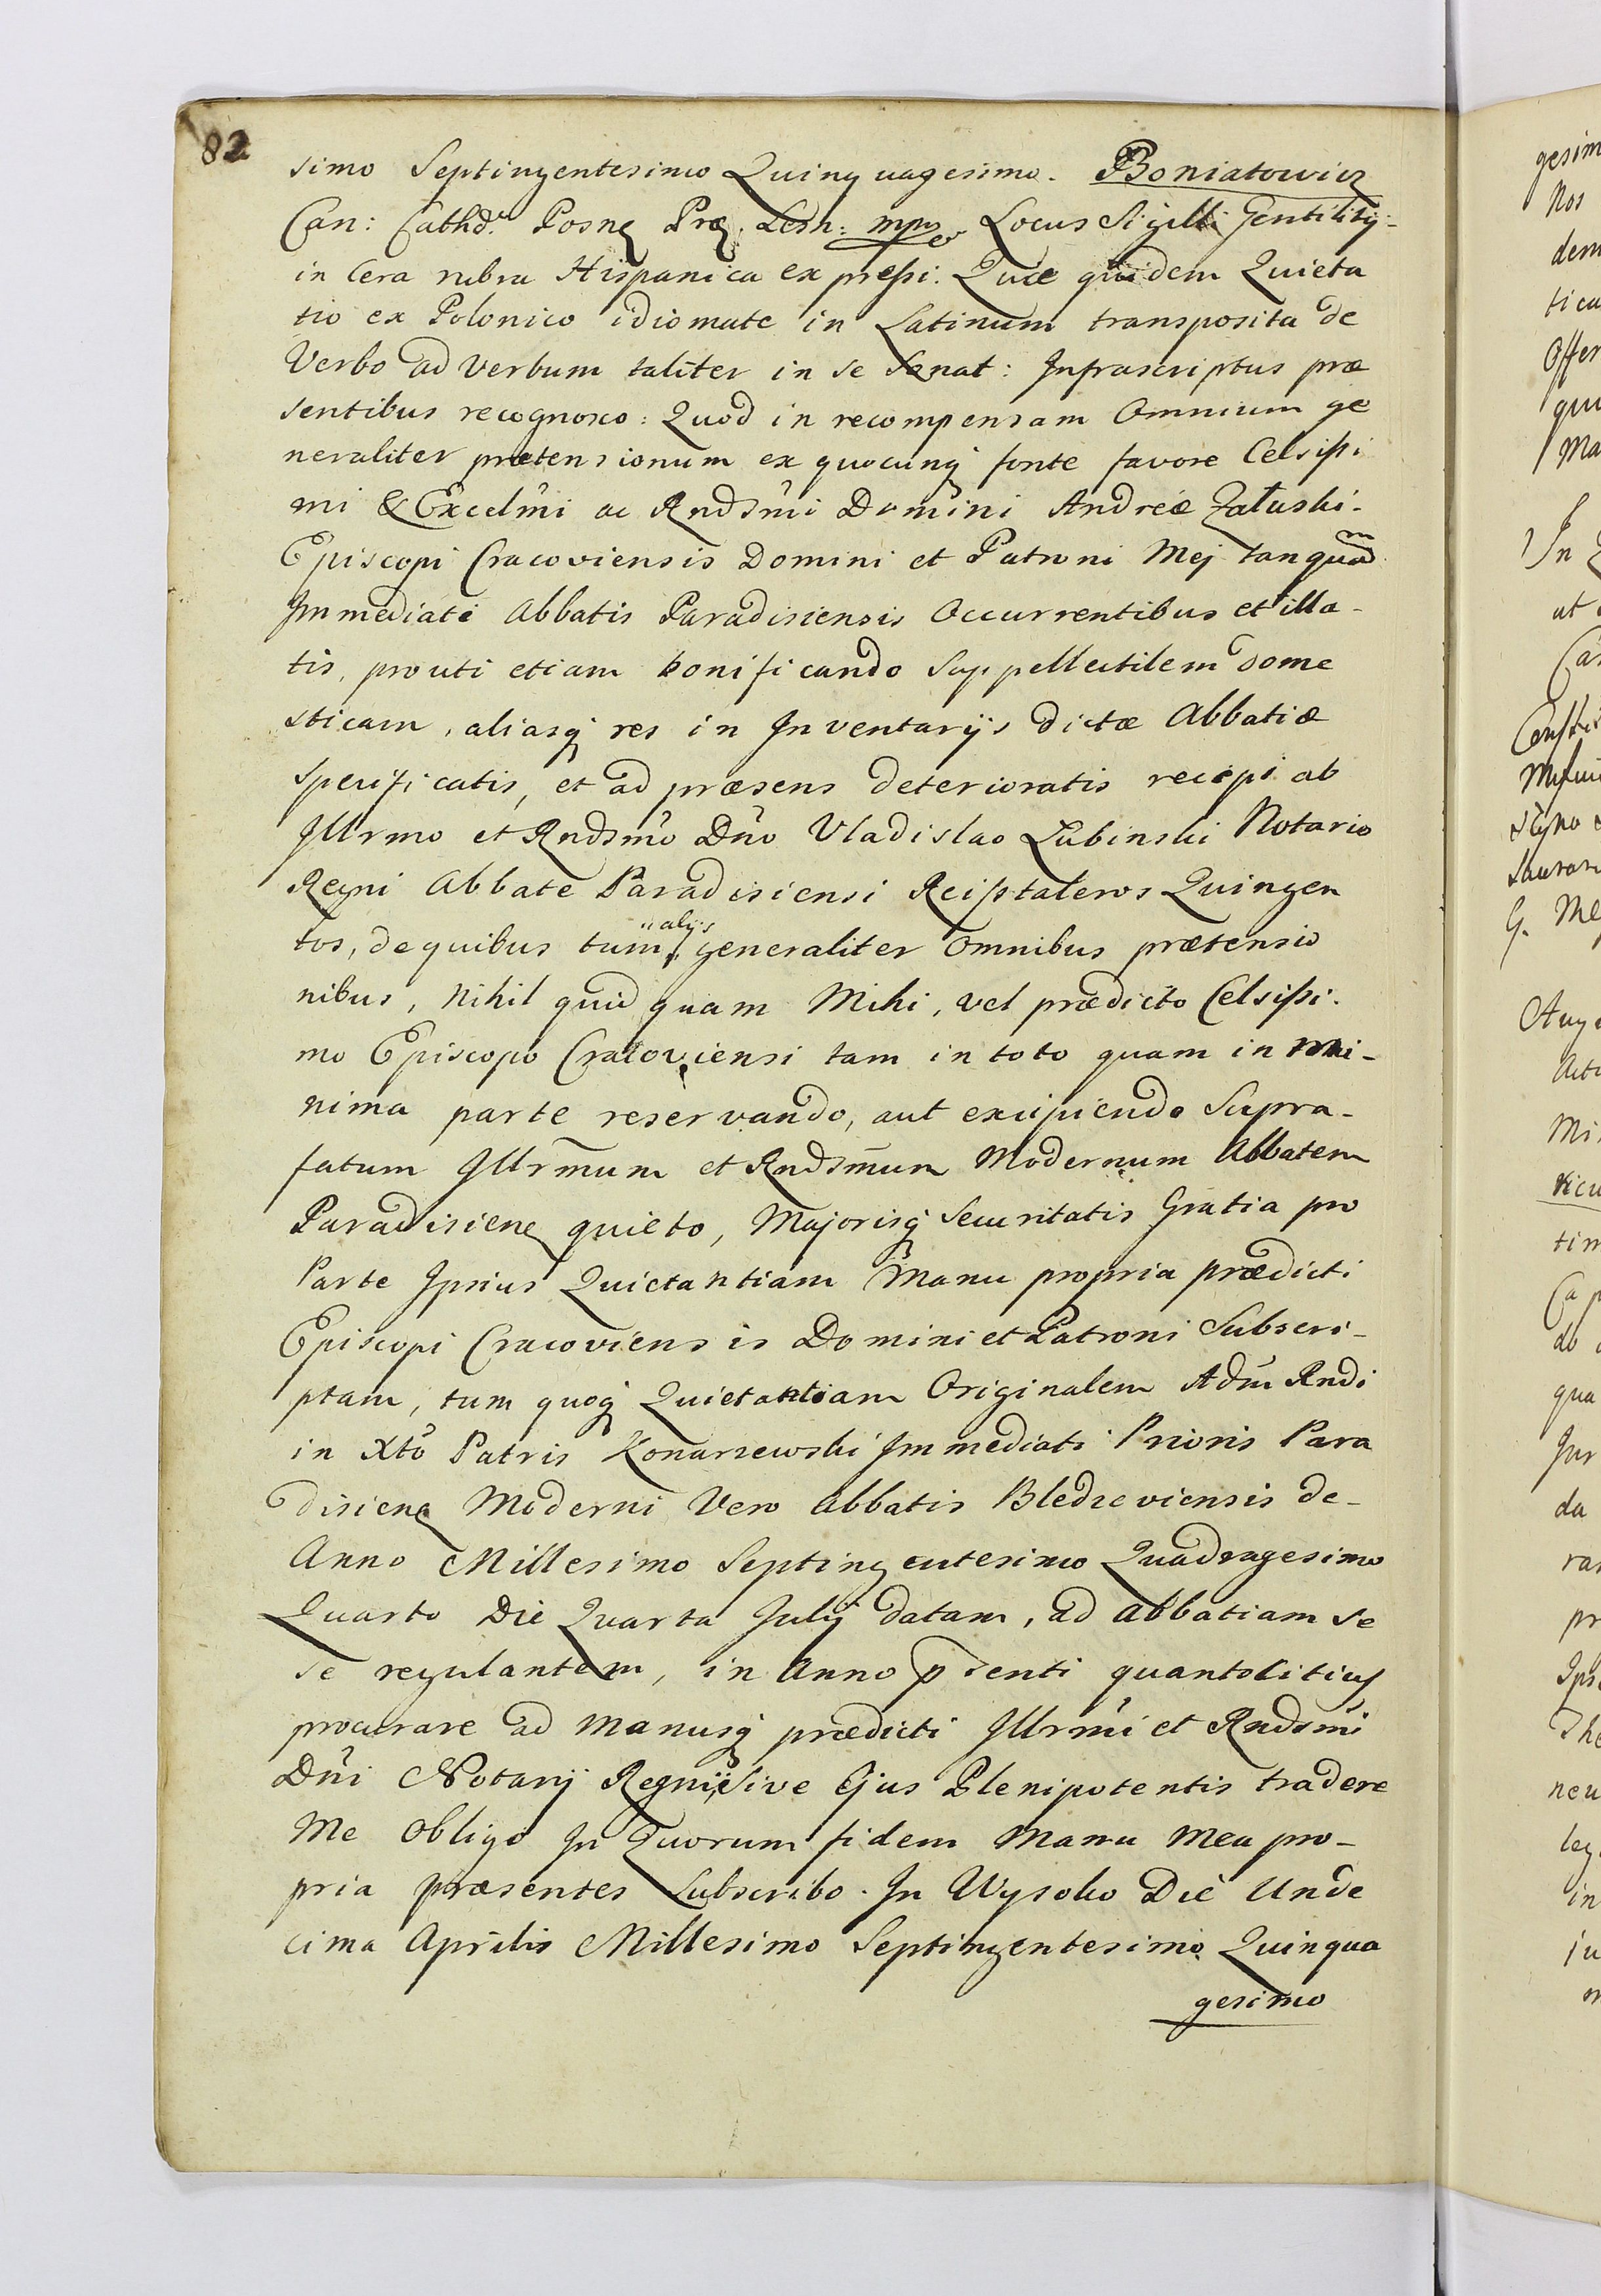 82
simo Septingentesimo Quinquagesimo. Boniatowicz
Can: Cathd. Posnę Præ. Lesn: mpp Locus Sigilli Gentilitij
in Cera rubra Hispanica expressi. Quæ quidem Quieta
tio ex Polonico idiomate in Latinum transposita de
Verbo ad Verbum taliter in se Sonat: Infrascriptus præ
sentibus recognosco: Quod in recompensam Omnium ge
neraliter prætensionum ex quocunq; fonte favore Celsissi
mi & Excelmi ac Rndsmi Domini Andreæ Załuski
Episcopi Cracoviensis Domini et Patroni Mej tanquam
Immediati Abbatis Paradisiensis Occurrentibus et illa-
tis, prouti etiam bonificando Suppellectilem dome
sticam, aliasq; res in Inventarijs dictæ Abbatiæ
Specificatis, et ad præsens deterioratis recepi ab
Illrmo et Rndsmo Dno Vladislao Łubinski Notario
Regni Abbate Paradisiensi Reipstaleros Quingen
tos, de quibus tum alijs generaliter Omnibus prætensio
nibus, Nihil quid quam Mihi, vel prædicto Celsissi-
mo Episcopo Cracoviensi tam in toto quam in mi-
nima parte reservando, aut excipiendo Supra-
fatum Illrmum et Rndsmum Modernum Abbatem
Paradisienę quieto, Majorisq; Securitatis Gratia pro
Parte Ipsius Quietantiam Manu propria prædicti
Episcopi Cracoviensis Domini et Patroni Subscri-
ptam, tum quoq; Quietantiam Originalem Adm Rndi
in Xto Patris Konarzewski Immediati Prioris Para
disienę Moderni Vero Abbatis Bledzeviensis de-
Anno Millesimo Septingentesimo Quadragesimo
Quarto Die Quarta Julij datam, ad Abbatiam se
se regulantem, in Anno psenti quantocitius
procurare ad manusq; prædicti Illrmi et Rndsmi
Dni Notarij Regnij, Sive Ejus Plenipotentis tradere
Me Obligo In Quorum fidem Manu Mea pro-
pria præsentes Subscribo. In Wysoko Die Unde
cima Aprilis Millesimo Septingentesimo Quinqua
gesimo